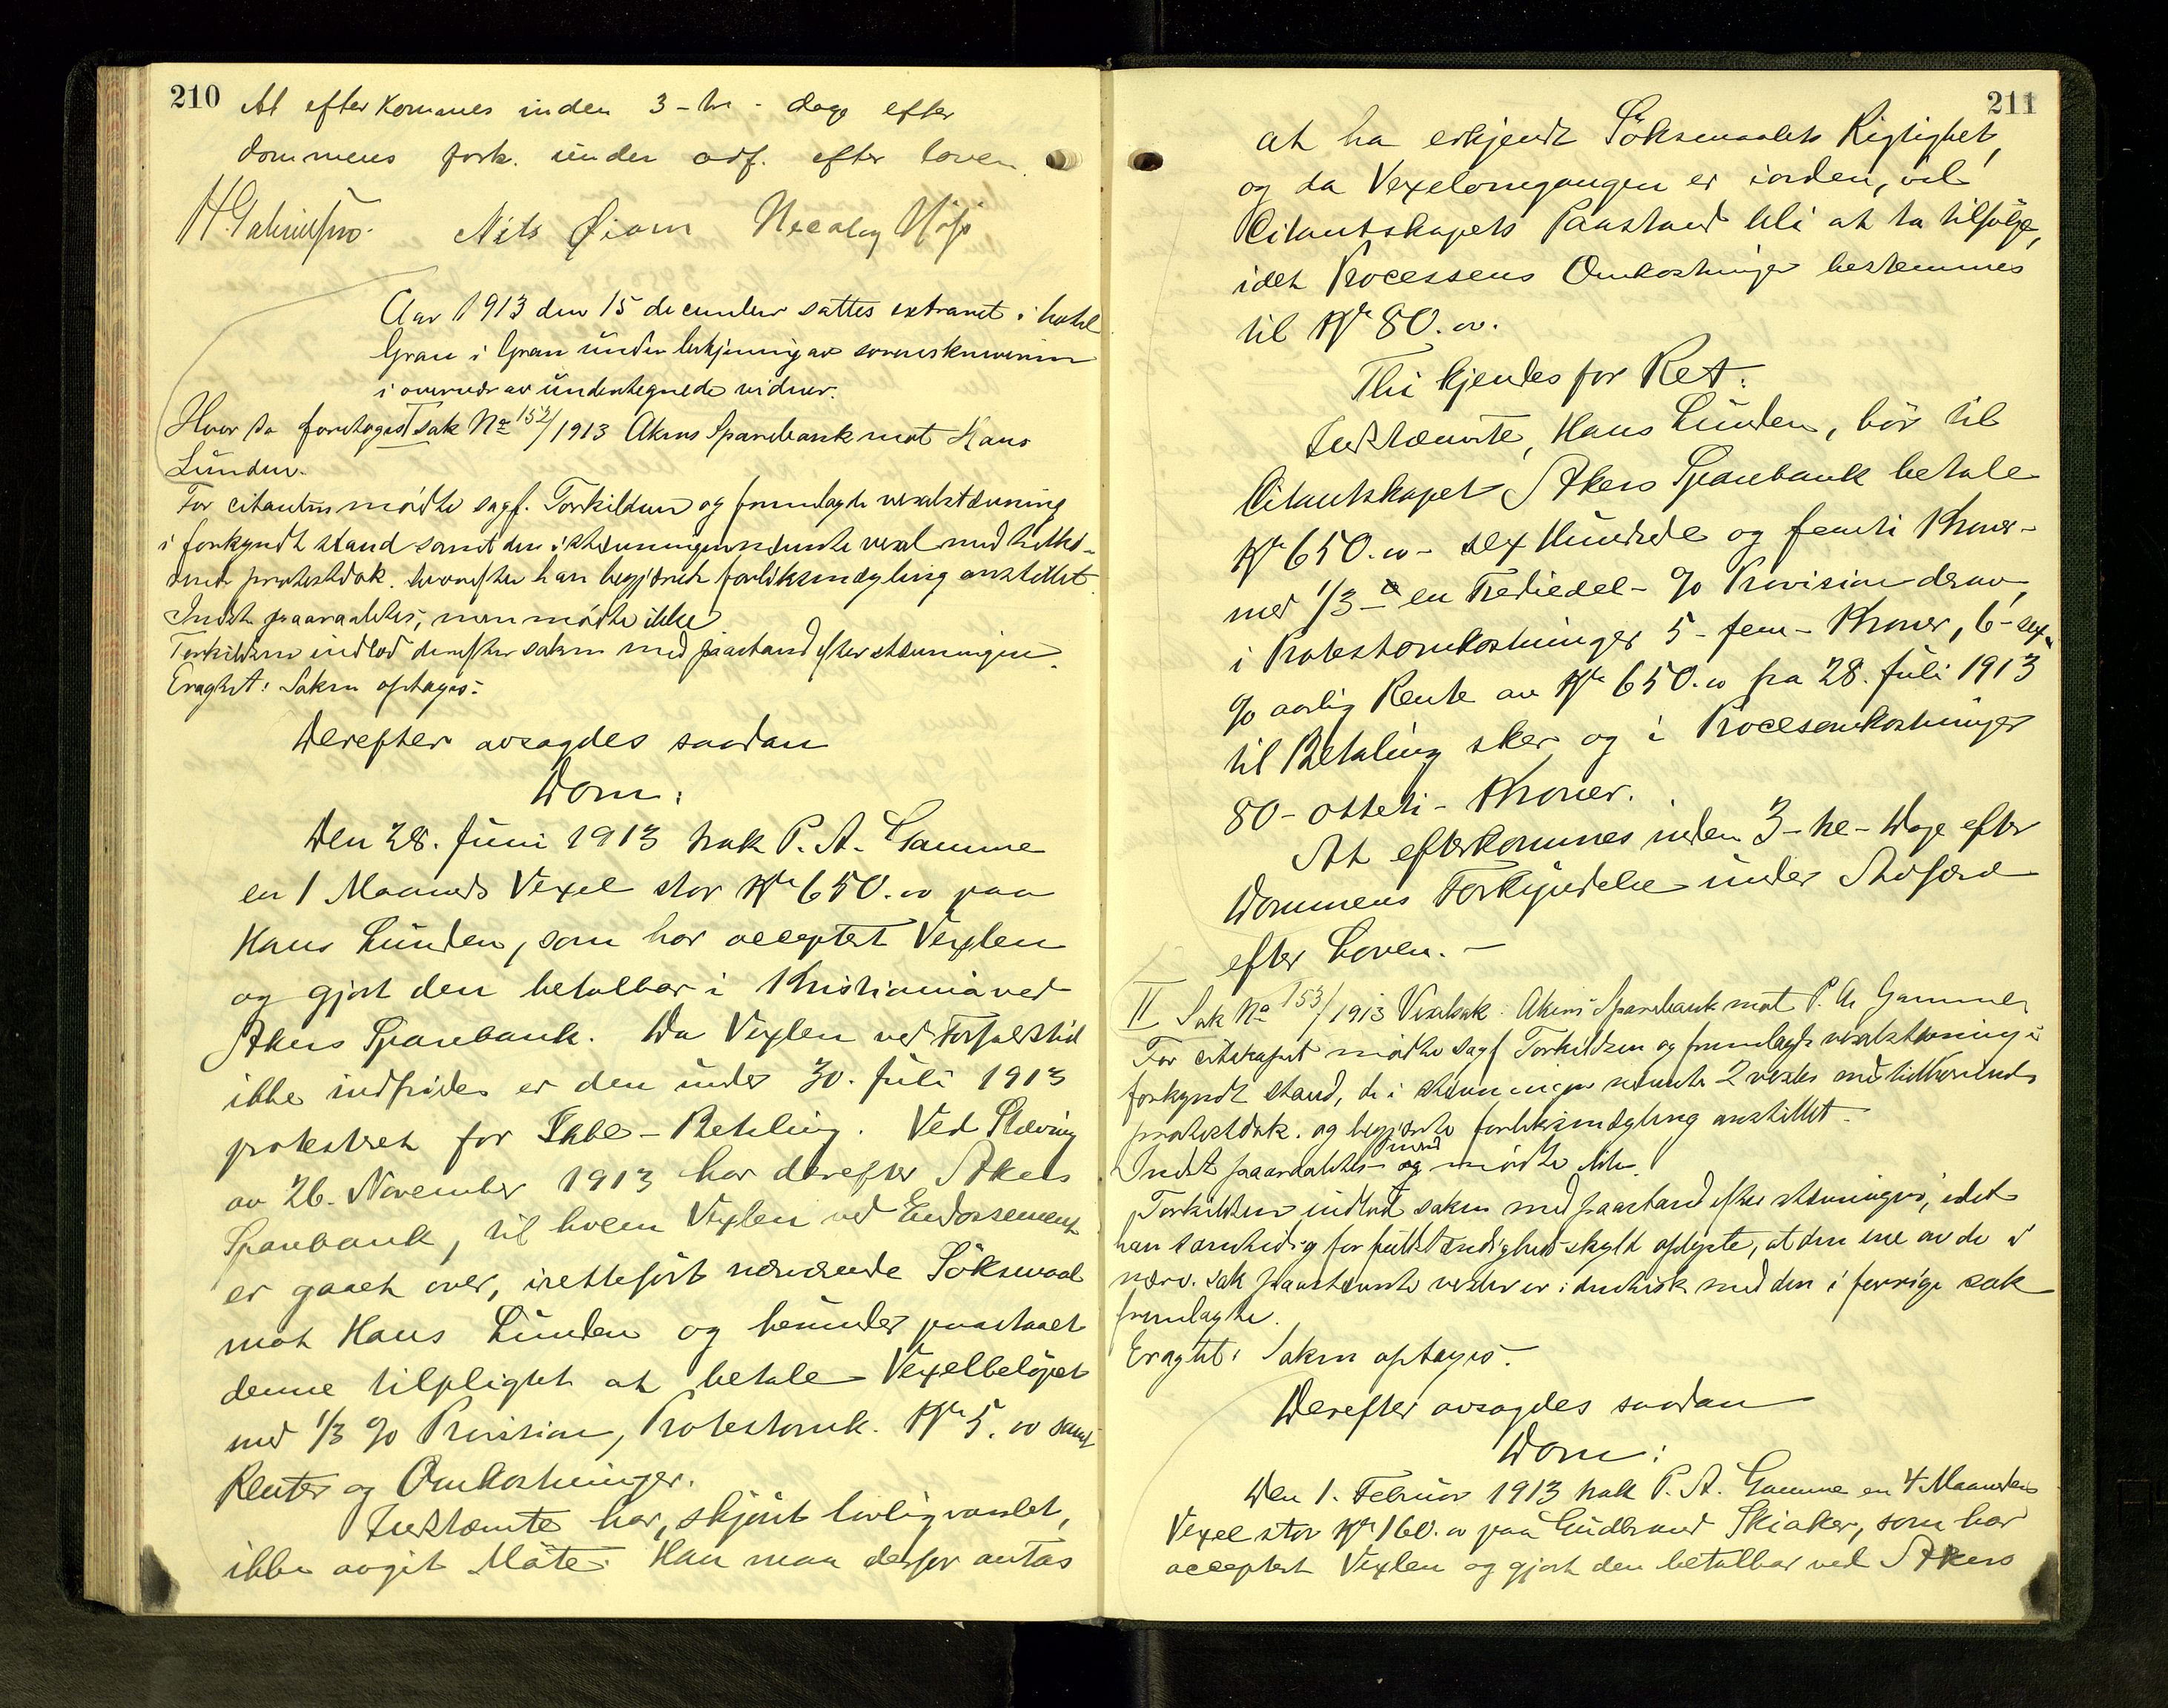 210
At efterkommes inden 3 - tre - dage efter
dommens fork. under adf. efter loven.
Nils Øiom
Aar 1913 den 15 december sattes extraret i hotel
Gran i Gran under betjening av sorenskriveren
i overvær av undertegnede vidner.
Hvor da foretoges I sak No 152/1913 Akers Sparebank mot Hans
Lunden.
For citantens mødte sagf. Torkildsen og fremlagde vexelstævning
i forkyndt stand samt den i stævningen nævnte vexel med tilhø-
rende protestdok. hvorefter han begjærede forliksmægling anstillet.
Indst. paaraabtes, men mødte ikke
Torkildsen indlod derefter saken med paastand efter stævningen.
Eragtet: Saken optages.
Derefter avsagdes saadan
Dom:
Den 28. Juni 1913 trak P. A. Gamme
en 1 Maaneds Vexel stor Kr 650.00 paa
Hans Lunden, som har acceptert Vexlen
og gjort den betalbar i Kristiania ved
Akers Sparebank. Da Vexlen ved Forfaldstid
ikke indfriedes er den under 30. Juli 1913
protestret for Ikke-Betaling. Ved Stævning
av 26. November 1913 har derefter Akers
Sparebank, til hvem Vexlen ved Endossement
er gaaet over, iretteført nærværende Søksmaal
mot Hans Lunden og herunder paastaaet
denne tilpligtet at betale Vexelbeløpet
med 1/3 % Provision, Protestomk. Kr 5.00 samt
Renter og Omkostninger.
Indstævnte har, skjønt lovlig varslet,
ikke avgit Møte. Han maa derfor antas
211
at ha erkjendt Søksmaalets Rigtighet,
og da Vexelomgangen er iorden, vil
Citantskapets Paastand bli at ta tilfølge,
idet Processens Omkostninger bestemmes
til Kr 80.00.
Thi kjendes for Ret:
Indstævnte, Hans Lunden, bør til
Citantskapet Akers Sparebank betale
Kr 650.00 - sex Hundrede og femti Kroner -
med 1/3 - en Trediedel - % Provision derav,
i Protestomkostninger 5 - fem - Kroner, 6 - sex -
% aarlig Rente av Kr 650.00 fra 28. Juli 1913
til Betaling sker, og i Procesomkostninger
80 - otteti - Kroner.
At efterkommes inden 3 - tre - Dage efter
Dommens Forkyndelse under Adfærd
efter Loven. -
II Sak No 153/1913 Vexelsak: Akers Sparebank mot P. A. Gamme
For citskapet mødte sagf Torkildsen og fremlagde vexelstævning i
forkyndt stand, de i stævningen nævnte 2 vexler med tilhørende
protestdok. og begjærte forliksmægling anstillet.
Indst paaraabtes men og mødte ikke.
Torkildsen indlod saken med paastand efter stævningen, idet
han samtidig for fuldstændigheds skyld oplyste, at den ene av de i
nærv. sak paastævnte vexler er identisk med den i forrige sak
fremlagte.
Eragtet: Saken optages.
Derefter avsagdes saadan
Dom:
Den 1. Februar 1913 trak P. A. Gamme en 4 Maaneders
Vexel stor Kr 160.00 paa Gudbrand Skiaker, som har
acceptert Vexlen og gjort den betalbar ved Akers